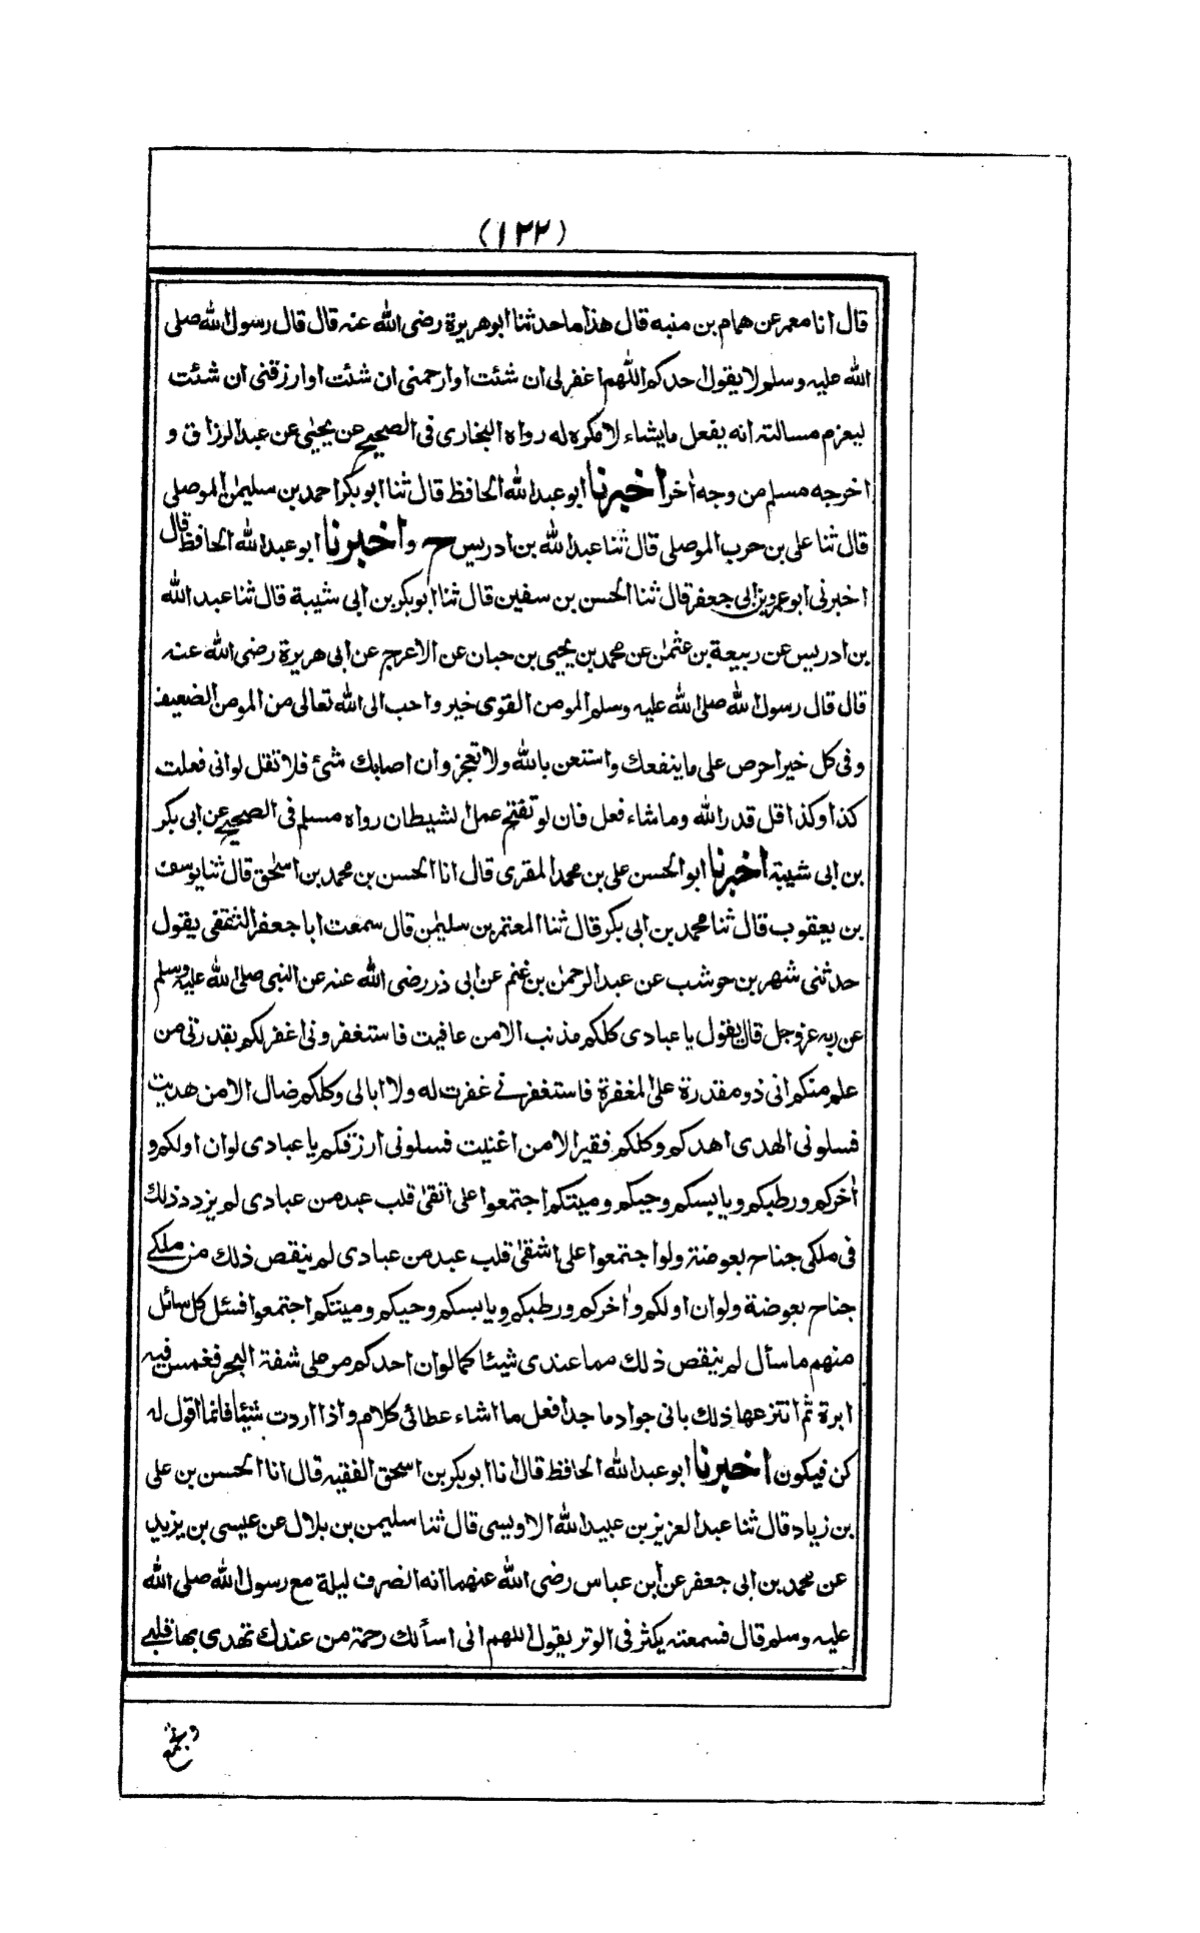 (١٢٢)
قال انا معمر عن همام بن منبه قال هذا ما حدثنا ابو هريرة رضى الله عنه قال قال رسول الله صلى
الله عليه وسلم لا يقول احدكم اللهم اغفر لى ان شئت او ارحمنى ان شئت او ارزقنى ان شئت
ليعزم مسالته انه يفعل ما يشاء لا مكره له رواه البخارى فى الصحيح عن يحيى عن عبد الرزاق و
اخرجه مسلم من وجه اٰخر اخبرنا ابو عبد الله الحافظ قال ثنا ابو بكر احمد بن سليمن الموصلى
قال ثنا على بن حرب الموصلى قال ثنا عبد الله بن ادريس ح واخبرنا ابو عبد الله الحافظ قال
اخبرنى ابو عمرو بن ابى جعفر قال ثنا الحسن بن سفين قال ثنا ابو بكر بن ابى شيبة قال ثنا عبد الله
بن ادريس عن ربيعة بن عثمٰن عن محمد بن يحيى بن حبان عن الاعرج عن ابى هريرة رضى الله عنه
قال قال رسول الله صلى الله عليه وسلم المومن القوى خير واحب الى الله تعالى من المومن الضعيف
وفى كل خير احرص على ما ينفعك واستعن بالله ولا تعجز وان اصابك شئ فلا تقل لو انى فعلت
كذا وكذا قل قدر الله وما شاء فعل فان لو تفتح عمل الشيطان رواه مسلم فى الصحيح عن ابى بكر
بن ابى شيبة اخبرنا ابو الحسن على بن محمد المقرى قال انا الحسن بن محمد بن اسحٰق قال ثنا يوسف
بن يعقوب قال ثنا محمد بن ابى بكر قال ثنا المعتمر بن سليمٰن قال سمعت ابا جعفر الثقفى يقول
حدثنى شهر بن حوشب عن عبد الرحمٰن بن غنم عن ابى ذر رضى الله عنه عن النبى صلى الله عليه وسلم
عن ربه عزوجل قال يقول يا عبادى كلكم مذنب الا من عافيت فاستغفرونى اغفر لكم بقدرتى من
علم منكم انى ذو مقدرة على المغفرة فاستغفرنے غفرت له ولا ابالى وكلكم ضال الا من هديت
فسلونى الهدى اهدكم وكلكم فقير الا من اغنيت فسلونى ارزقكم يا عبادى لو ان اولكم و
اٰخركم ورطبكم ويابسكم وحيكم وميتكم اجتمعوا على اتقىٰ قلب عبد من عبادى لم يزد ذلك
فى ملكى جناح بعوضة ولو اجتمعوا على اشقىٰ قلب عبد من عبادى لم ينقص ذلك من ملكے
جناح بعوضة ولو ان اولكم واٰخركم ورطبكم ويابسكم وحيكم وميتكم اجتمعوا فسئل كل سائل
منهم ما سأل لم ينقص ذلك مما عندى شيئا كما لو ان احدكم مر على شفة البحر فغمس فيه
ابرة ثم انتزعها ذلك بانى جواد ماجد افعل ما اشاء عطائى كلام واذا اردت شيئا فانما اقول له
كن فيكون اخبرنا ابو عبد الله الحافظ قال انا ابو بكر بن اسحق الفقيه قال انا الحسن بن على
بن زياد قال ثنا عبد العزيز بن عبيد الله الاويسى قال ثنا سليمن بن بلال عن عيسى بن يزيد
عن محمد بن ابى جعفر عن ابن عباس رضى الله عنهما انه انصرف ليلة مع رسول الله صلى الله
عليه وسلم قال فسمعته يكثر فى الوتر يقول اللهم انى اسألك رحمة من عندك تهدى بها قلبے
وتجمع